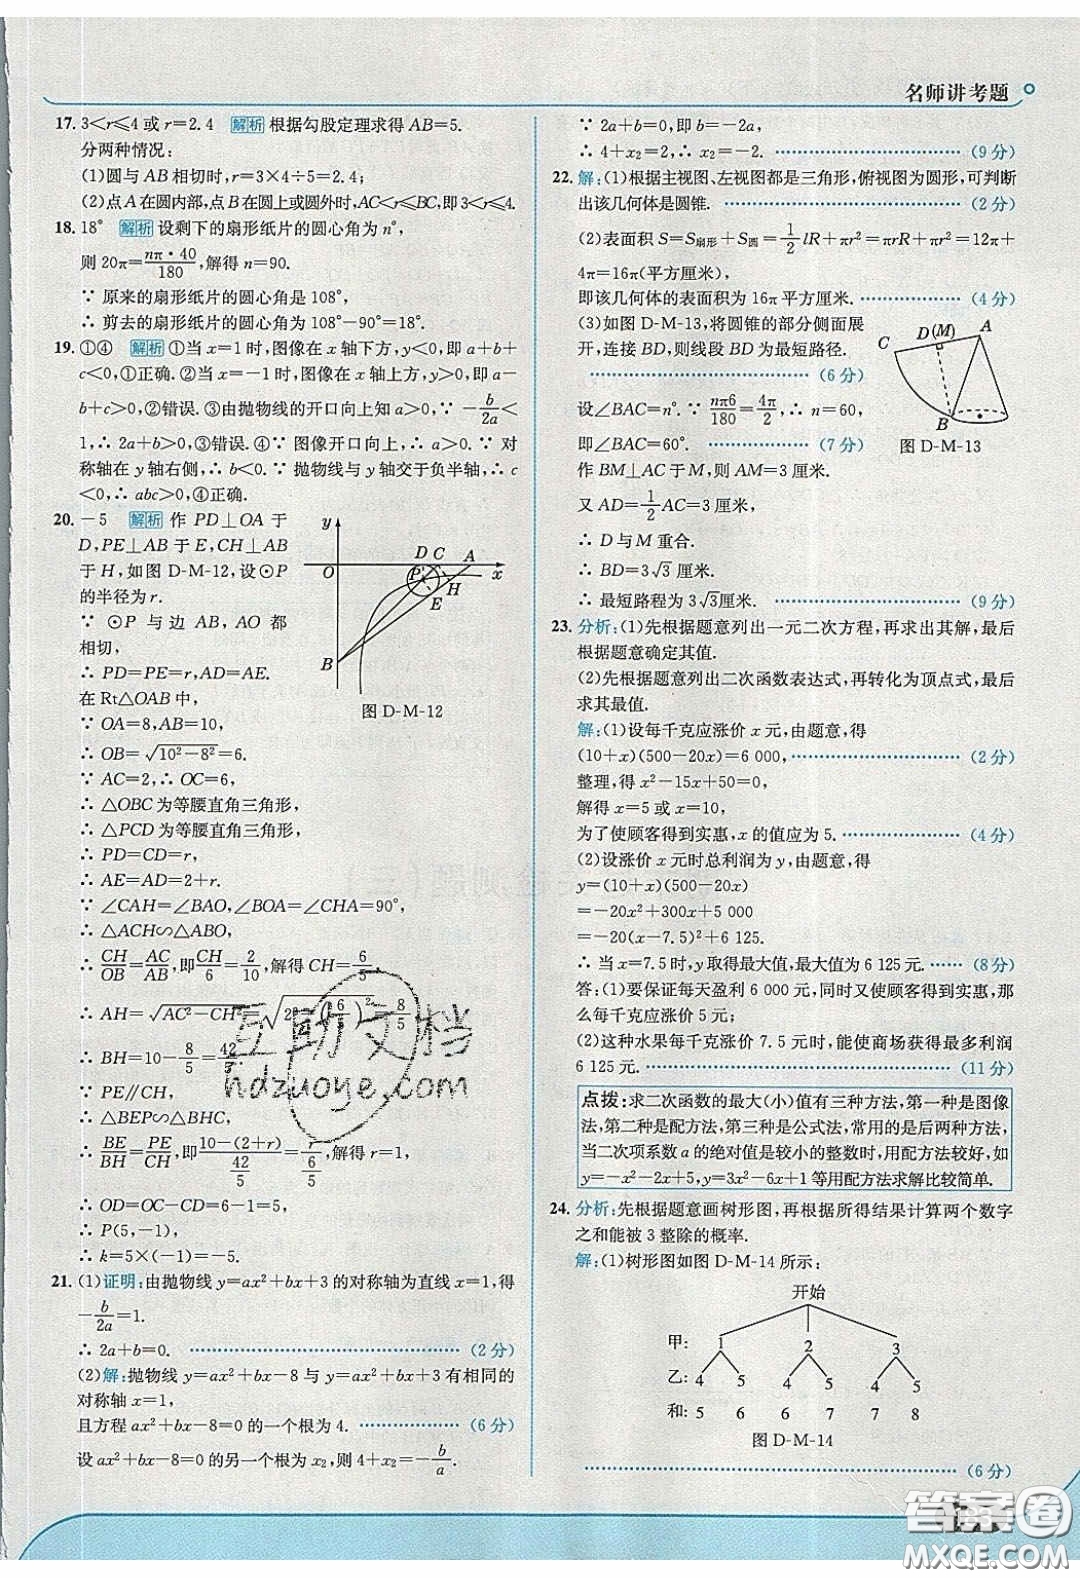 名师讲考题
17. 3<r≤4或r=2.4 解析 根据勾股定理求得AB=5.
分两种情况:
(1)圆与AB相切时,r=3×4÷5=2.4;
(2)点A在圆内部,点B在圆上或圆外时,AC<r≤BC,即3<r≤4.
18. 18° 解析 设剩下的扇形纸片的圆心角为n°,
则20π=nπ·40/180,解得n=90.
∵ 原来的扇形纸片的圆心角是108°,
∴ 剪去的扇形纸片的圆心角为108°-90°=18°.
19. ①④ 解析 ①当x=1时,图像在x轴下方,y<0,即a+b+
c<0,①正确.②当x=-1时,图像在x轴上方,y>0,即a-
b+c>0,②错误.③由抛物线的开口向上知a>0,∵ -b/2a<
1,∴ 2a+b>0,③错误.④∵ 图像开口向上,∴ a>0.∵ 对
称轴在y轴右侧,∴ b<0.∵ 抛物线与y轴交于负半轴,∴ c
<0,∴ abc>0,④正确.
20. -5 解析 作PD⊥OA于
D,PE⊥AB于E,CH⊥AB
于H,如图D-M-12,设⊙P
的半径为r.
∵ ⊙P与边AB,AO都
相切,
∴ PD=PE=r,AD=AE.
在Rt△OAB中,
∵ OA=8,AB=10,
∴ OB=√(10²-8²)=6.
∵ AC=2,∴ OC=6,
∴ △OBC为等腰直角三角形,
∴ △PCD为等腰直角三角形,
∴ PD=CD=r,
∴ AE=AD=2+r.
∵ ∠CAH=∠BAO,∠BOA=∠CHA=90°,
∴ △ACH∽△ABO,
∴ CH/OB=AC/AB,即CH/6=2/10,解得CH=6/5,
∴ AH=√(AC²-CH²)=√(2²-(6/5)²)=8/5
∴ BH=10-8/5=42/5
∵ PE∥CH,
∴ △BEP∽△BHC,
∴ BE/BH=PE/CH,即(10-(2+r))/(42/5)=r/(6/5),解得r=1,
∴ OD=OC-CD=6-1=5,
∴ P(5,-1),
∴ k=5×(-1)=-5.
y D C A O P H x E B
图D-M-12
21. (1)证明:由抛物线y=ax²+bx+3的对称轴为直线x=1,得
-b/2a=1.
∴ 2a+b=0. (2分)
(2)解:抛物线y=ax²+bx-8与y=ax²+bx+3有相同的
对称轴x=1,
且方程ax²+bx-8=0的一个根为4. (6分)
设ax²+bx-8=0的另一个根为x₂,则4+x₂=-b/a.
∵ 2a+b=0,即b=-2a,
∴ 4+x₂=2,∴ x₂=-2. (9分)
22. 解:(1)根据主视图、左视图都是三角形,俯视图为圆形,可判断
出该几何体是圆锥. (2分)
(2)表面积S=S扇形+S圆=1/2lR+πr²=πrR+πr²=12π+
4π=16π(平方厘米),
即该几何体的表面积为16π平方厘米. (4分)
(3)如图D-M-13,将圆锥的部分侧面展
开,连接BD,则线段BD为最短路径.
(6分)
设∠BAC=n°.∵ nπ6/180=4π/2,∴ n=60,
即∠BAC=60°. (7分)
作BM⊥AC于M,则AM=3厘米.
又AD=1/2AC=3厘米,
∴ D与M重合.
∴ BD=3√3厘米.
∴ 最短路程为3√3厘米. (9分)
C D(M) A B
图D-M-13
23. 分析:(1)先根据题意列出一元二次方程,再求出其解,最后
根据题意确定其值.
(2)先根据题意列出二次函数表达式,再转化为顶点式,最后
求其最值.
解:(1)设每千克应涨价x元,由题意,得
(10+x)(500-20x)=6 000, (2分)
整理,得x²-15x+50=0,
解得x=5或x=10,
为了使顾客得到实惠,x的值应为5. (4分)
(2)设涨价x元时总利润为y,由题意,得
y=(10+x)(500-20x)
=-20x²+300x+5 000
=-20(x-7.5)²+6 125.
∴ 当x=7.5时,y取得最大值,最大值为6 125元. (8分)
答:(1)要保证每天盈利6 000元,同时又使顾客得到实惠,那
么每千克应涨价5元;
(2)这种水果每千克涨价7.5元时,能使商场获得最多利润
6 125元. (11分)
点拨:求二次函数的最大(小)值有三种方法,第一种是图像
法,第二种是配方法,第三种是公式法,常用的是后两种方法,
当二次项系数a的绝对值是较小的整数时,用配方法较好,如
y=-x²-2x+5,y=3x²-6x+1等用配方法求解比较简单.
24. 分析:先根据题意画树形图,再根据所得结果计算两个数字
之和能被3整除的概率.
解:(1)树形图如图D-M-14所示:
开始
甲: 1 2 3
乙: 4 5 4 5 4 5
和: 5 6 6 7 7 8
图D-M-14
(6分)
互助文档
hdzuoye.com
答案卷
MXQE.COM